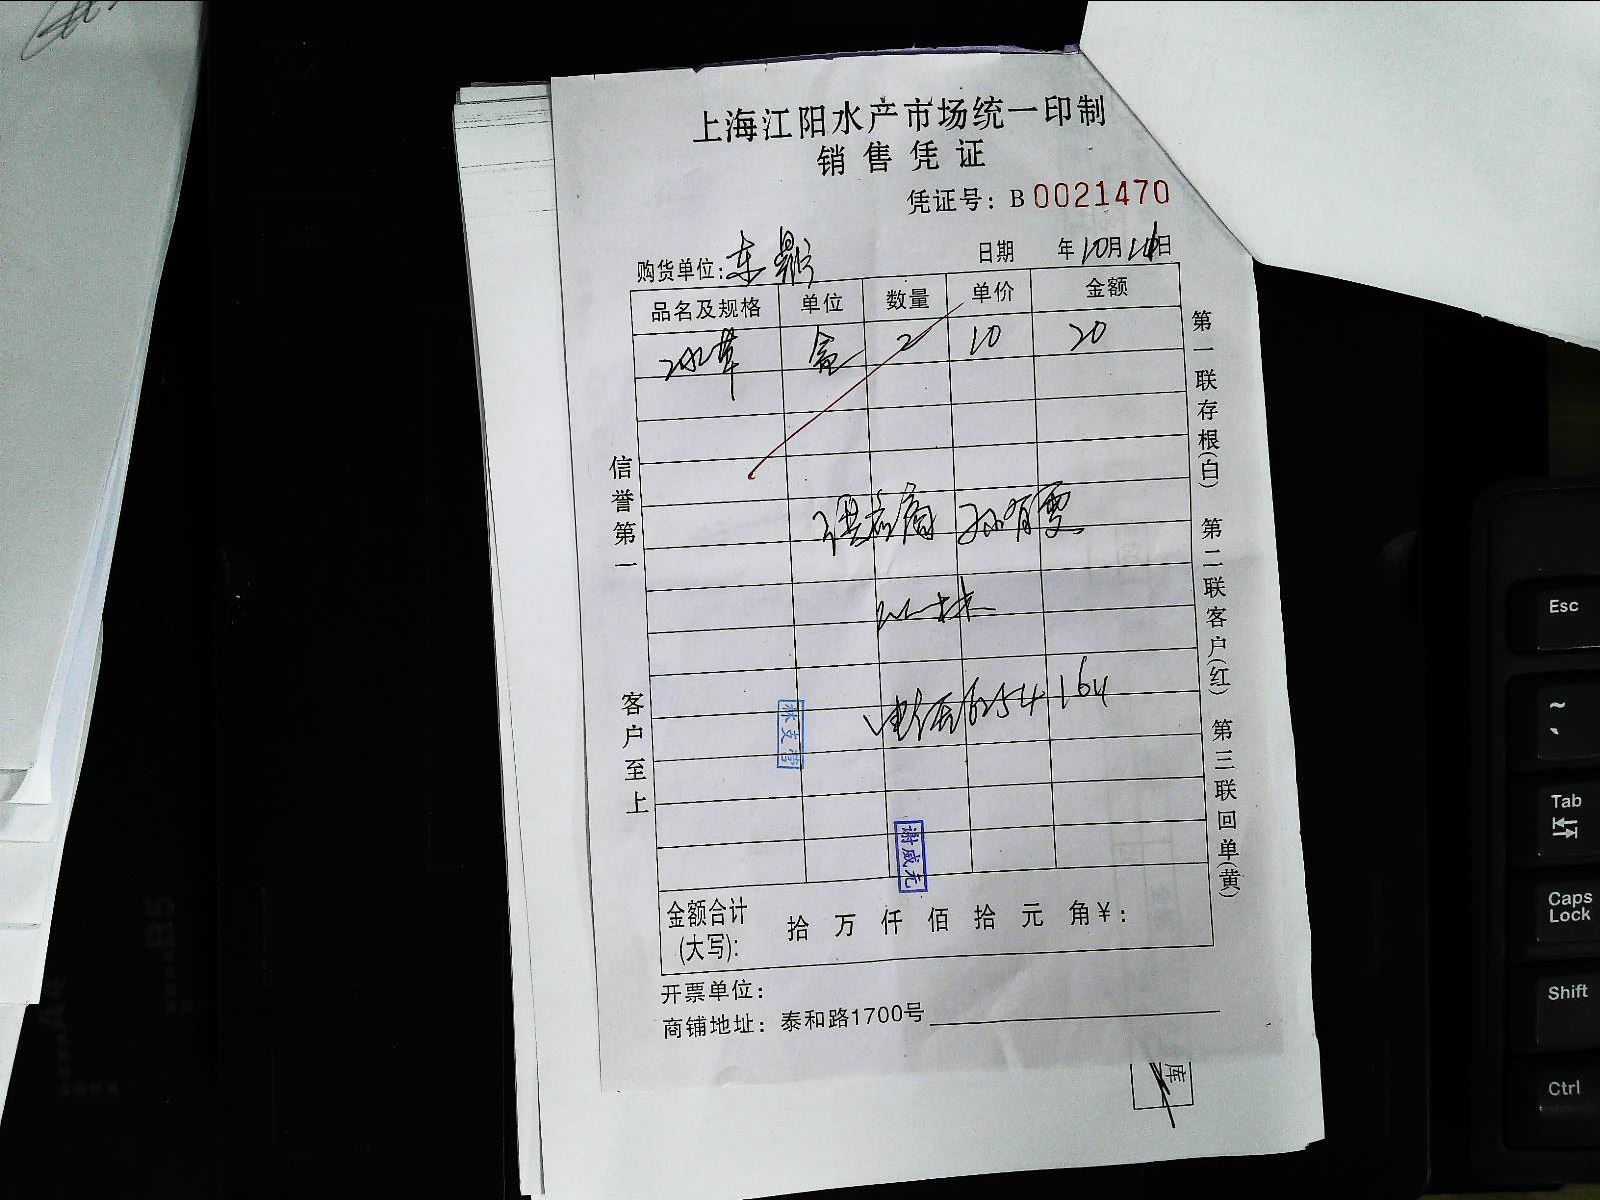 上海江阳水产市场统一印制
销售凭证
凭证号：B 0021470
购货单位：东 日期 年10月 日
品名及规格 单位 数量 单价 金额
冰草 盒 2 10 20
孙有雯
6254164
谢威元
金额合计
(大写)： 拾 万 仟 佰 拾 元 角¥：
开票单位：
商铺地址：泰和路1700号
信誉第一
客户至上
第一联存根(白)
第二联客户(红)
第三联回单(黄)
库
A4
B5
Esc
~
Tab
Caps Lock
Shift
Ctrl